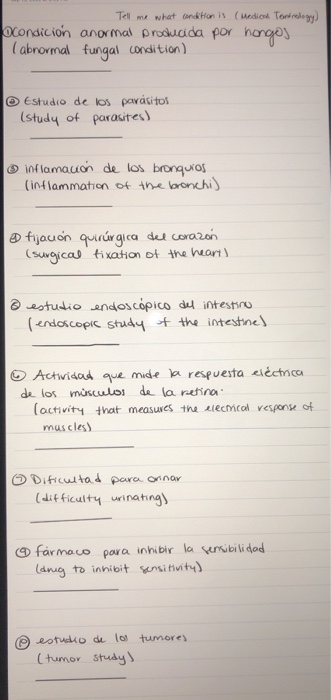 Tell me what condition is (Medical Terminology)
① Condición anormal producida por hongos
(abnormal fungal condition)
② Estudio de los parásitos
(study of parasites)
③ inflamación de los bronquios
(inflammation of the bronchi)
④ fijación quirúrgica del corazón
(surgical fixation of the heart)
⑤ estudio endoscópico del intestino
(endoscopic study of the intestine)
⑥ Actividad que mide la respuesta eléctrica
de los músculos de la retina.
(activity that measures the electrical response of
muscles)
⑦ Dificultad para orinar
(difficulty urinating)
⑨ fármaco para inhibir la sensibilidad
(drug to inhibit sensitivity)
estudio de los tumores
(tumor study)